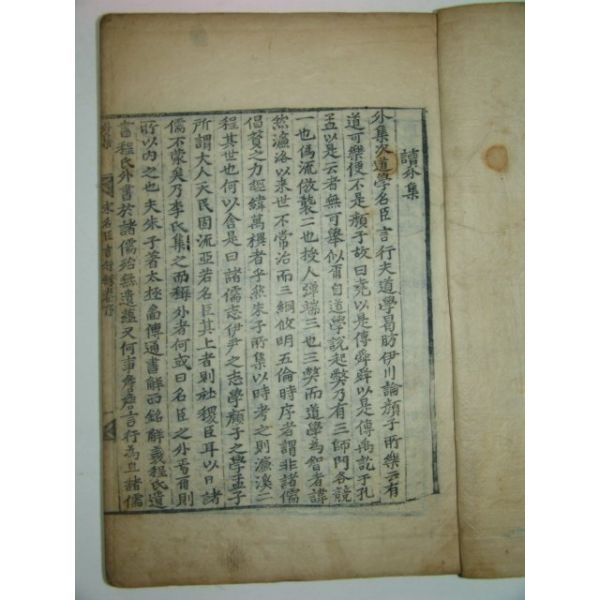 讀外集
外集次道學名臣言行夫道學曷昉伊川論顏子所樂云有
道可樂便不是顏子故曰堯以是傳舜舜以是傳禹訖于孔
孟以是云者無可舉似爾自道學說起獘乃有三師門各競
一也僞流倣襲二也授人彈端三也三獘而道學為智者諱
然濂洛以來世不常治而三綱攸明五倫時序者謂非諸儒
倡贊之力經緯萬橫者乎然朱子所集以時考之則濂溪二
程其世也何以舍是曰諸儒志伊尹之志學顏子之學孟子
所謂大人天民固流亞若名臣其上者則社稷臣耳以日諸
儒不蒙矣乃李氏集之而稱外者何或曰名臣之外焉爾則
所以内之也夫朱子著太極啚傳通書解西銘解義程氏遺
書程氏外書於諸儒殆無遺蘊又何事詹詹言行為且諸儒
外集
宋名臣言行錄